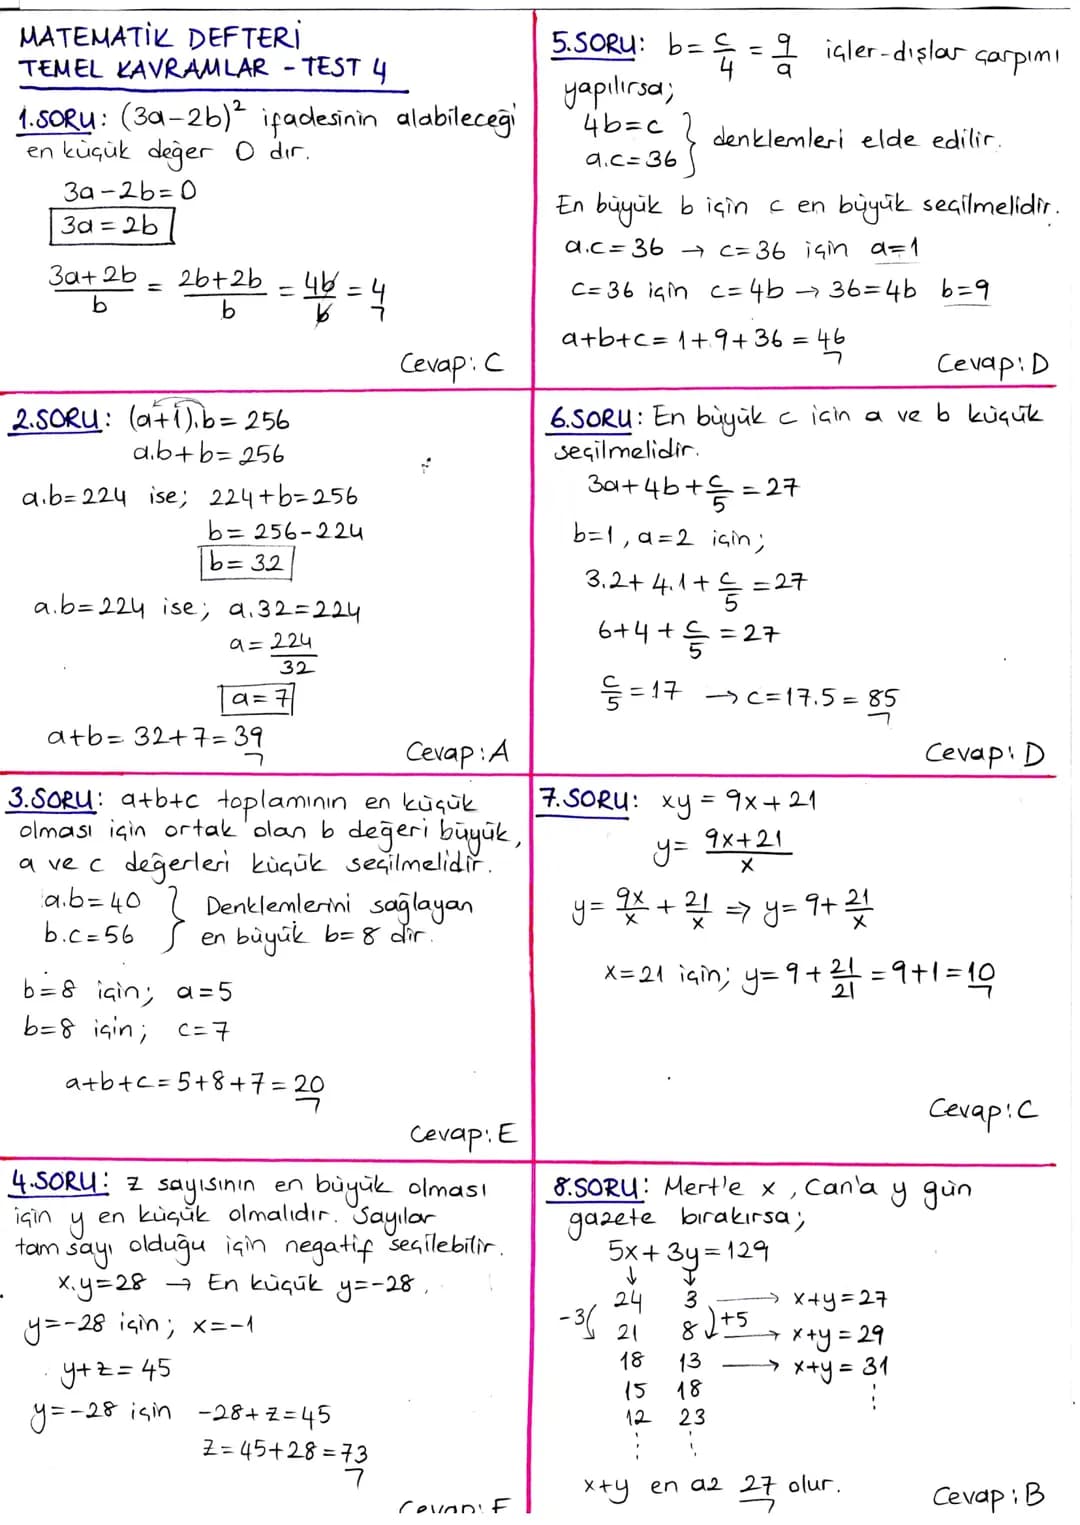 MATEMATİK DEFTERİ
TEMEL KAVRAMLAR - TEST 4
1.SORU: (3a-2b)² ifadesinin alabileceği
en küçük değer 0 dır.
3a-2b=0
3a=2b
3a+2b/b = 2b+2b/b = 4b/b = 4
Cevap: C
2.SORU: (a+1).b=256
a.b+b=256
a.b=224 ise; 224+b=256
b=256-224
b=32
a.b=224 ise; a.32=224
a=224/32
a=7
a+b=32+7=39
Cevap: A
3.SORU: a+b+c toplamının en küçük
olması için ortak olan b değeri büyük,
a ve c değerleri küçük seçilmelidir.
a.b=40 } Denklemlerini sağlayan
b.c=56 } en büyük b=8 dir.
b=8 için; a=5
b=8 için; c=7
a+b+c=5+8+7=20
Cevap: E
4.SORU: z sayısının en büyük olması
için y en küçük olmalıdır. Sayılar
tam sayı olduğu için negatif seçilebilir.
x.y=28 → En küçük y=-28,
y=-28 için; x=-1
y+z=45
y=-28 için -28+z=45
z=45+28=73
5.SORU: b=c/4=9/a içler-dışlar çarpımı
yapılırsa;
4b=c } denklemleri elde edilir.
a.c=36 }
En büyük b için c en büyük seçilmelidir.
a.c=36 → c=36 için a=1
c=36 için c=4b → 36=4b b=9
a+b+c=1+9+36=46
Cevap: D
6.SORU: En büyük c için a ve b küçük
seçilmelidir.
3a+4b+c/5=27
b=1, a=2 için;
3.2+4.1+c/5=27
6+4+c/5=27
c/5=17 → c=17.5=85
Cevap: D
7.SORU: xy=9x+21
y=9x+21/x
y=9x/x+21/x ⇒ y=9+21/x
x=21 için; y=9+21/21=9+1=10
Cevap: C
8.SORU: Mert'e x, Can'a y gün
gazete bırakırsa;
5x+3y=129
↓ ↓
24 3 → x+y=27
-3 21 8 +5 → x+y=29
18 13 → x+y=31
15 18
12 23
x+y en az 27 olur.
Cevap: B